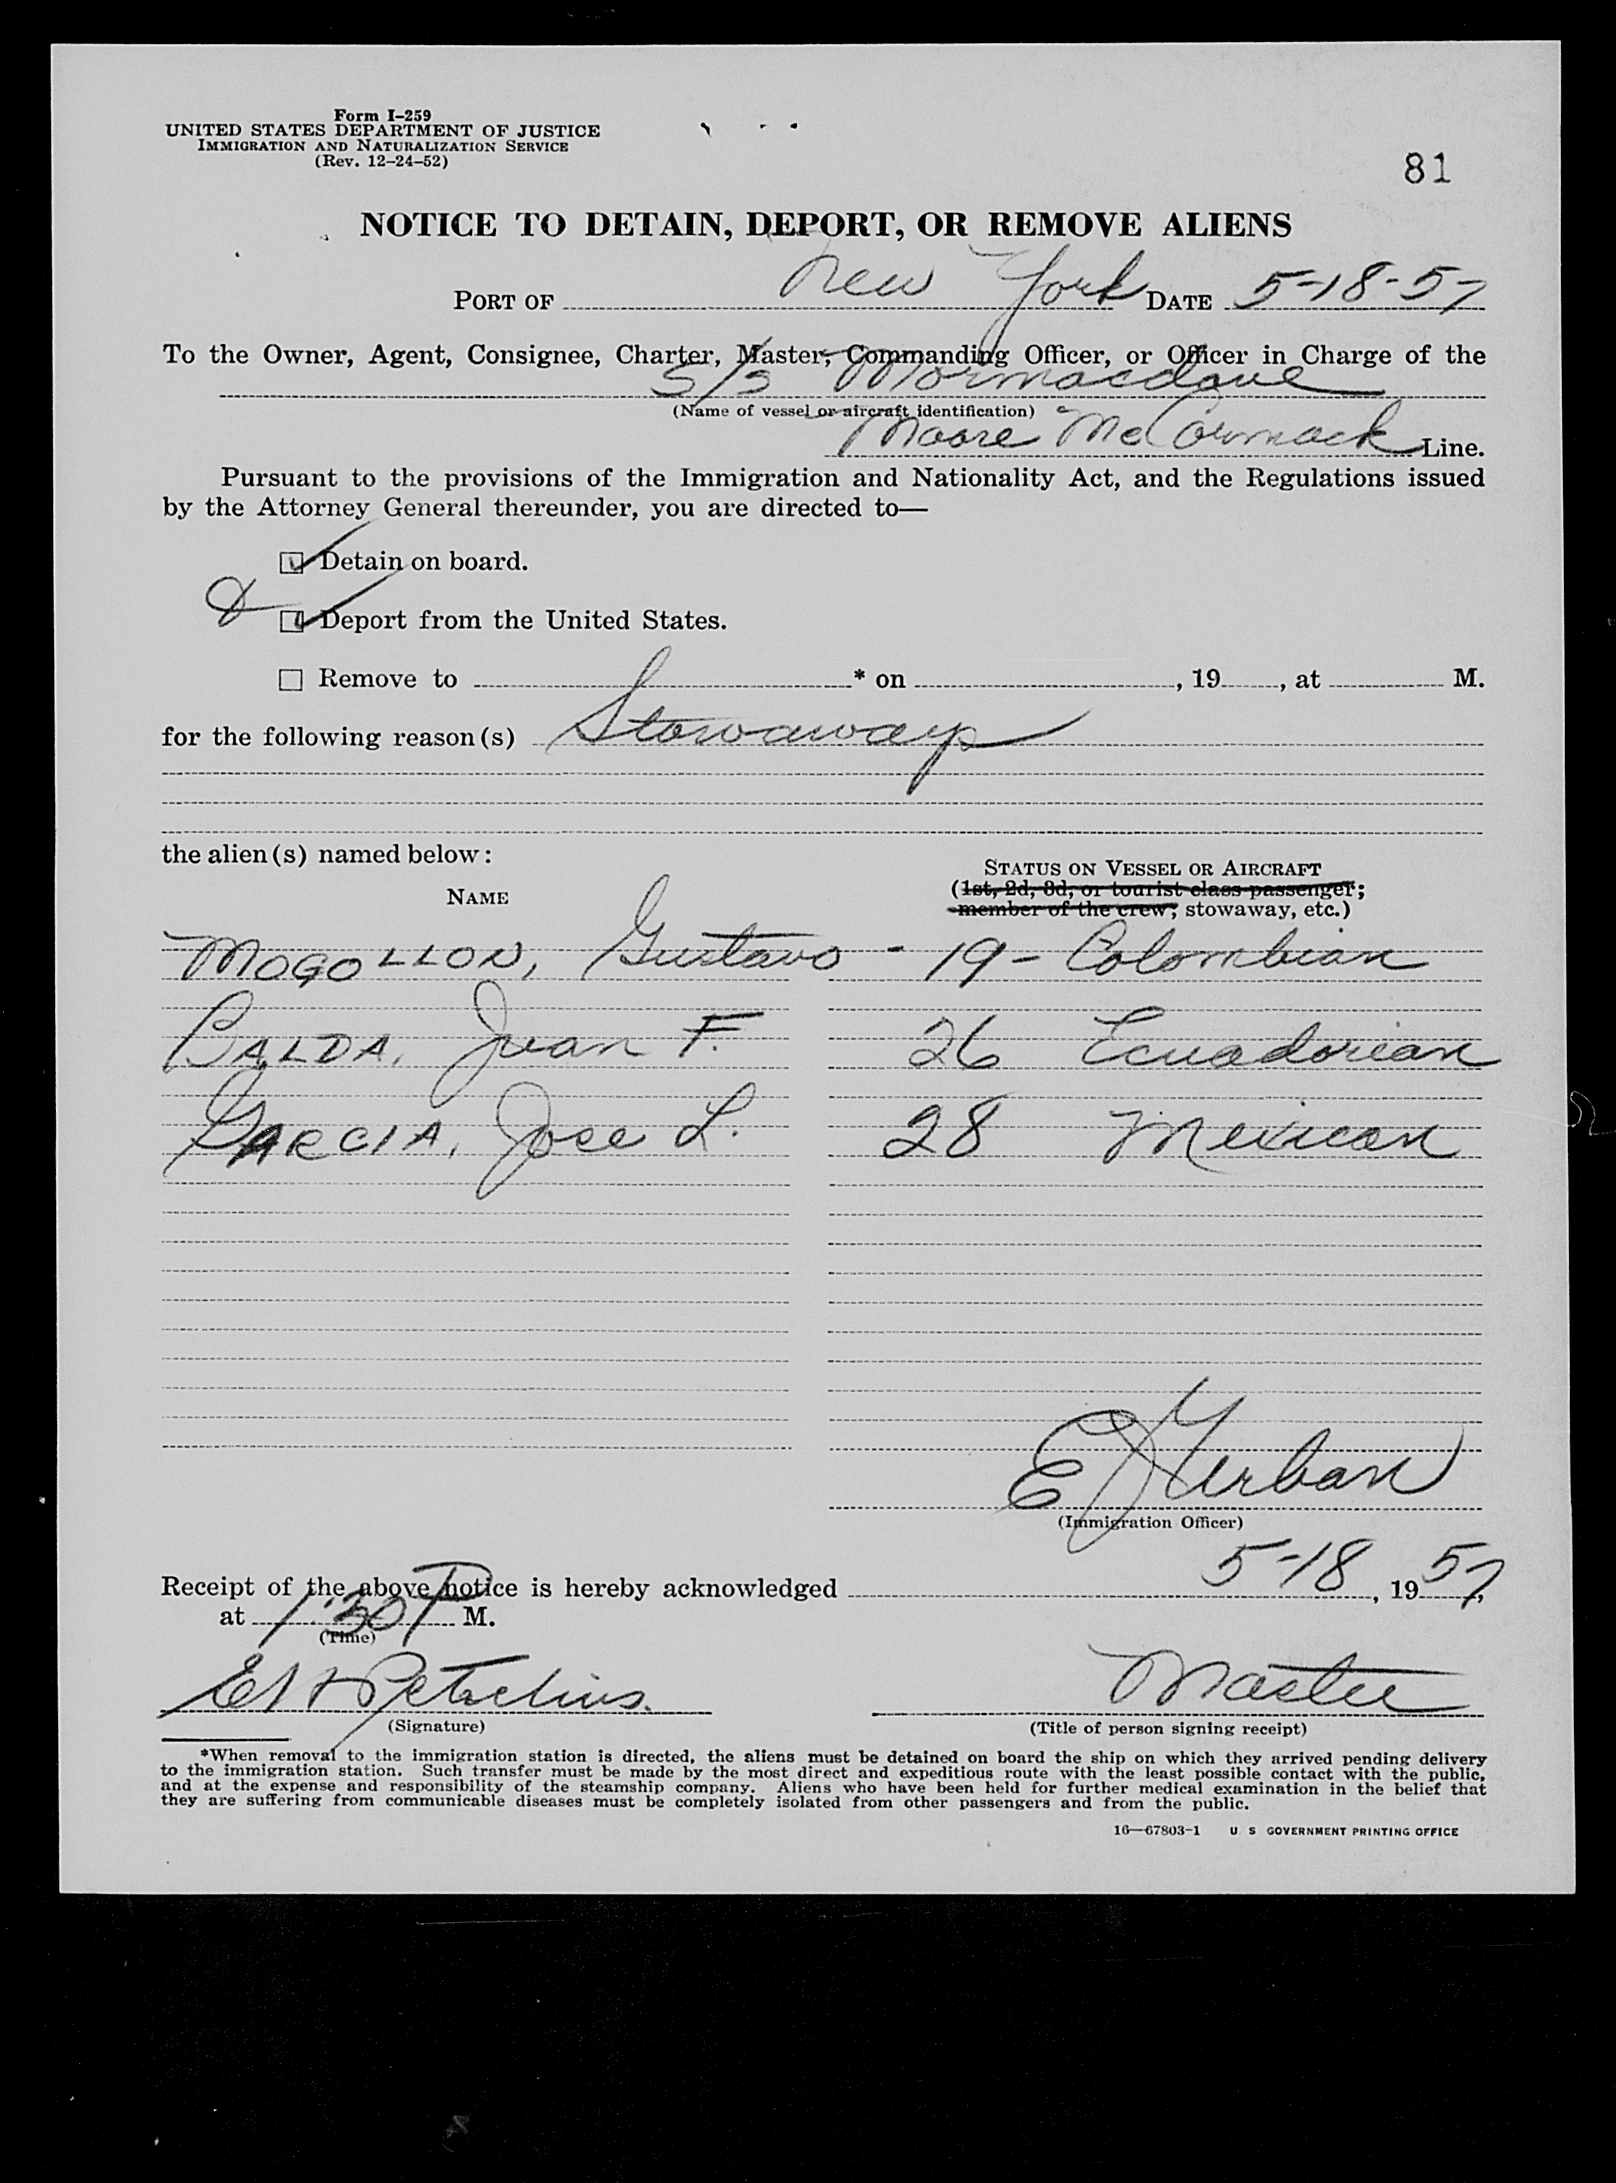 Form I-259
UNITED STATES DEPARTMENT OF JUSTICE
IMMIGRATION AND NATURALIZATION SERVICE
(Rev. 12-24-52)
81
NOTICE TO DETAIN, DEPORT, OR REMOVE ALIENS
PORT OF New York DATE 5-18-57
To the Owner, Agent, Consignee, Charter, Master, Commanding Officer, or Officer in Charge of the
S/S Mormacdove
(Name of vessel or aircraft identification)
Moore McCormack Line.
Pursuant to the provisions of the Immigration and Nationality Act, and the Regulations issued
by the Attorney General thereunder, you are directed to—
☑ Detain on board.
& ☑ Deport from the United States.
☐ Remove to * on , 19 , at M.
for the following reason(s) Stowaways
the alien(s) named below:
NAME
STATUS ON VESSEL OR AIRCRAFT
(1st, 2d, 3d, or tourist class passenger;
member of the crew; stowaway, etc.)
MOGOLLON, Gustavo - 19 - Colombian
BALDA, Juan F. 26 Ecuadorian
GARCIA, Jose L. 28 Mexican
E J Urban
(Immigration Officer)
Receipt of the above notice is hereby acknowledged 5-18, 1957,
at 1:30 P M.
(Time)
Master
(Signature)
(Title of person signing receipt)
*When removal to the immigration station is directed, the aliens must be detained on board the ship on which they arrived pending delivery
to the immigration station. Such transfer must be made by the most direct and expeditious route with the least possible contact with the public,
and at the expense and responsibility of the steamship company. Aliens who have been held for further medical examination in the belief that
they are suffering from communicable diseases must be completely isolated from other passengers and from the public.
16—67803-1 U S GOVERNMENT PRINTING OFFICE